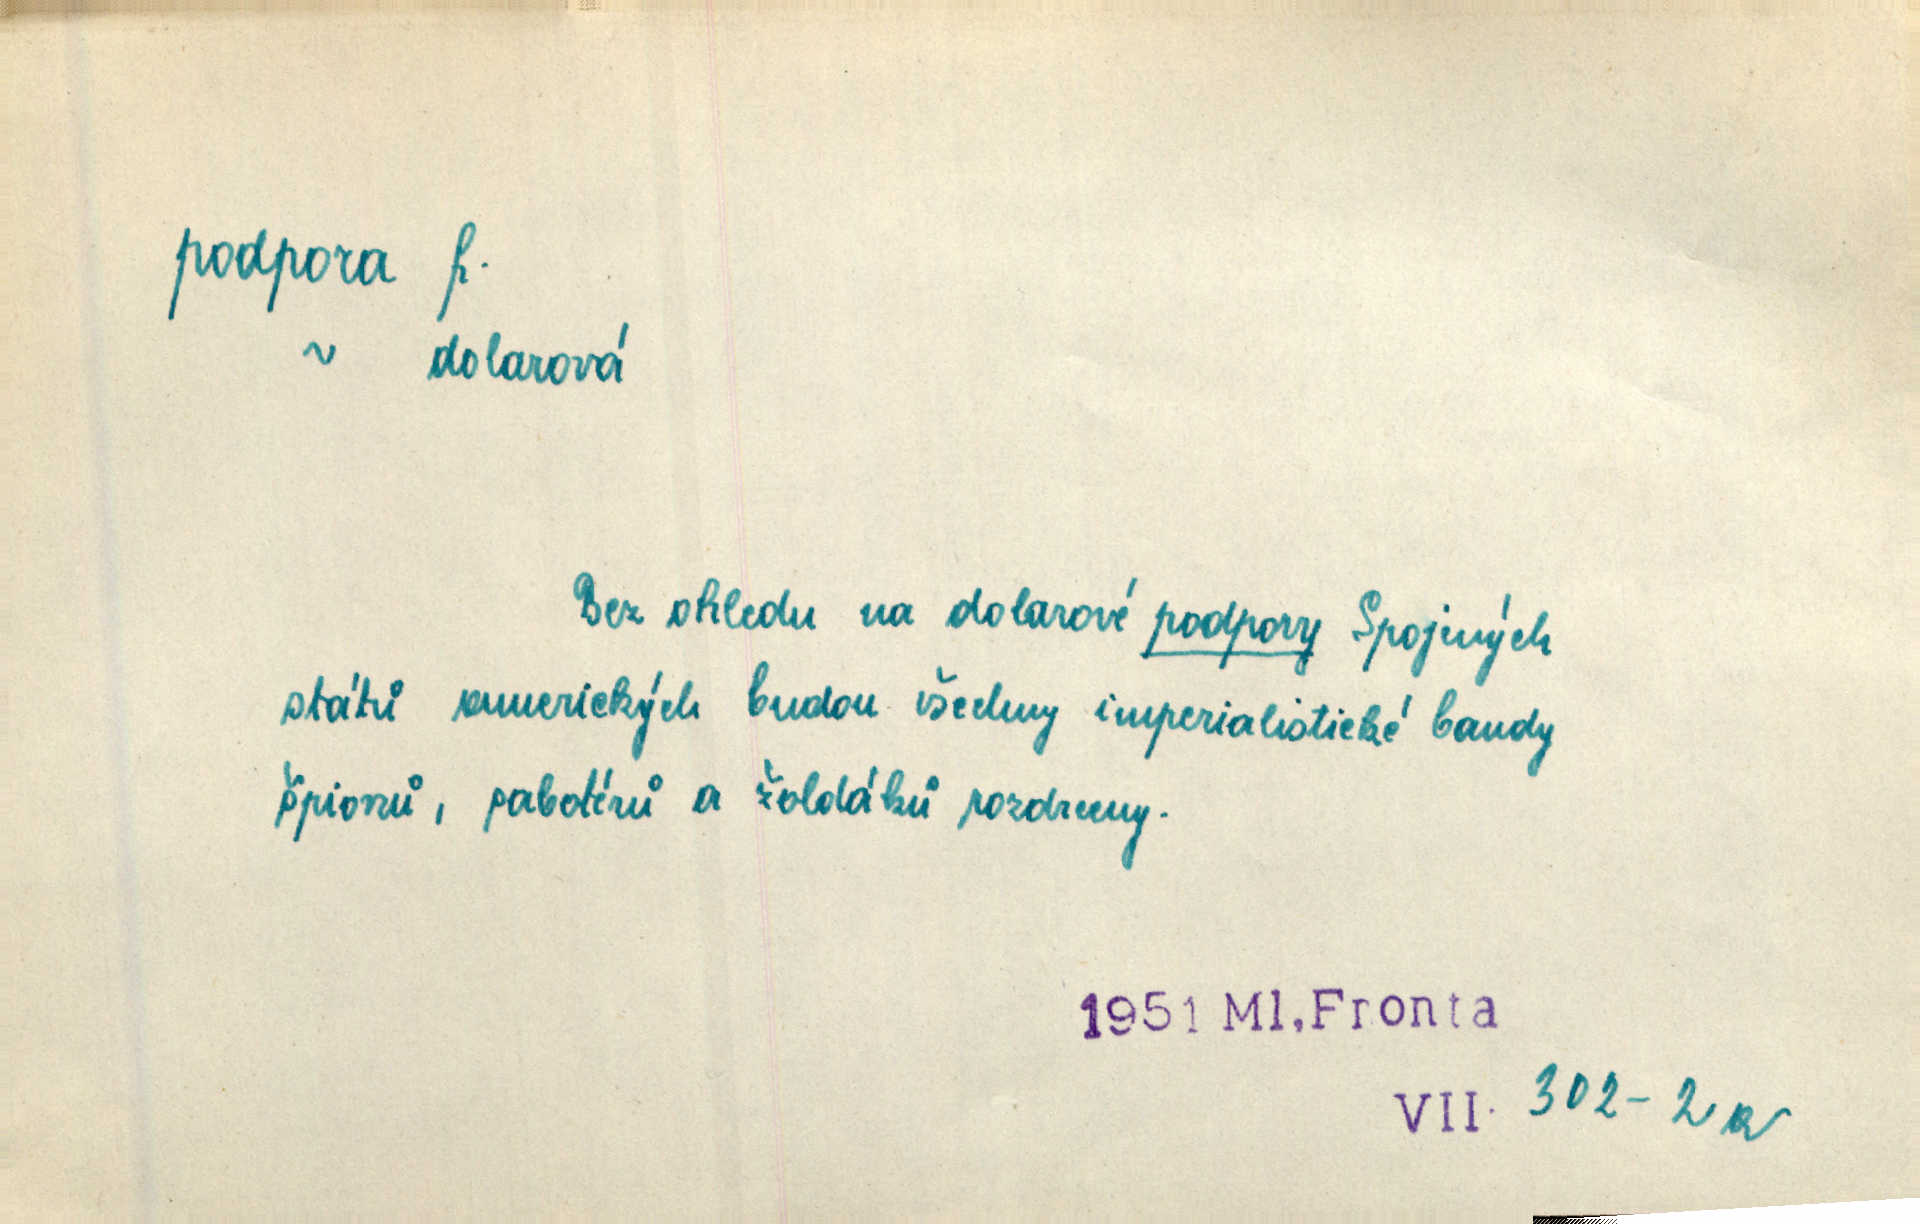 podpora f.
~ dolarová
Bez ohledu na dolarové podpory Spojených
států amerických budou všechny imperialistické bandy
špionů, sabotérů a žoldáků rozdrceny.
1951 Ml.Fronta
VII. 302-2